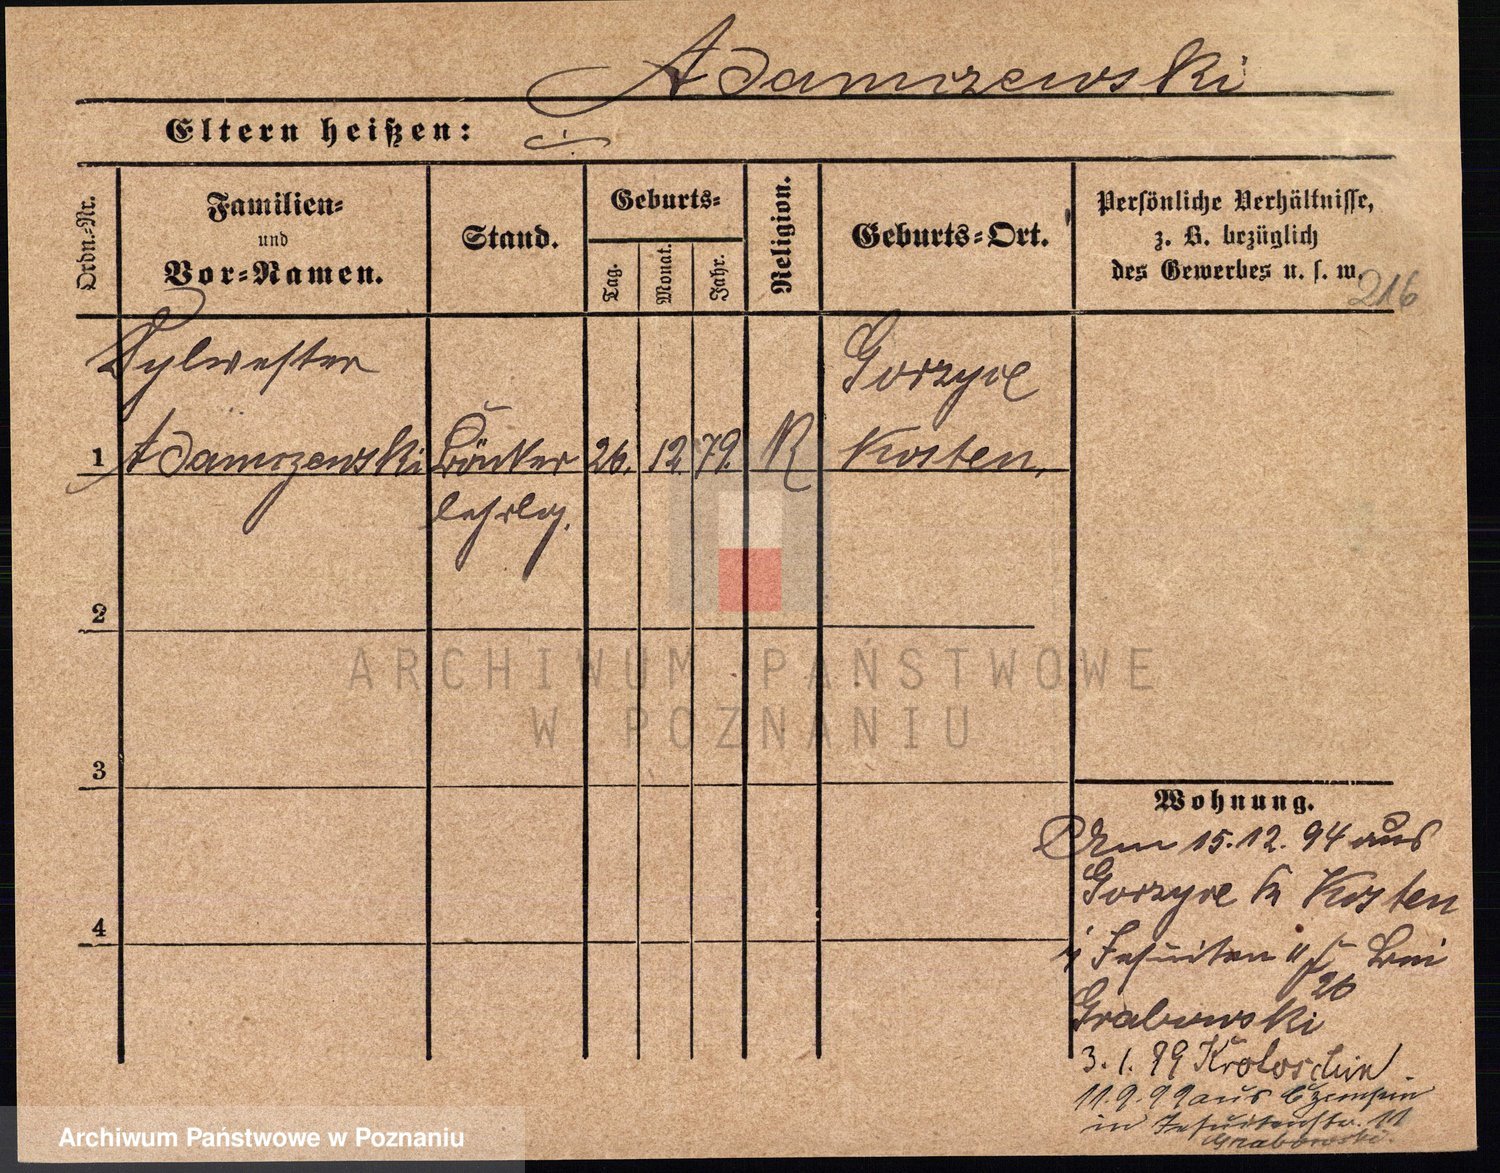 Adamczewski
Eltern heißen:
Ordn.-Nr.
Familien-
und
Vor-Namen.
Stand.
Geburts-
Tag.
Monat.
Jahr.
Religion.
Geburts-Ort.
Persönliche Verhältnisse,
z. B. bezüglich
des Gewerbes u. s. w.
216
Sylwester
Gorzyce
1 Adamczewski 26. 12. 79. K Kosten.
lehrlg.
2
ARCHIWUM PAŃSTWOWE
W POZNANIU
3
Wohnung.
Am 15.12.94 aus
Gorzyce Kosten
Jesuiten 11 bei
20
Grabowski
3.1.99 Krotoschin
4
11.9.99 aus Czempin
in Jesuitenstr. 11
Grabowski.
Archiwum Państwowe w Poznaniu